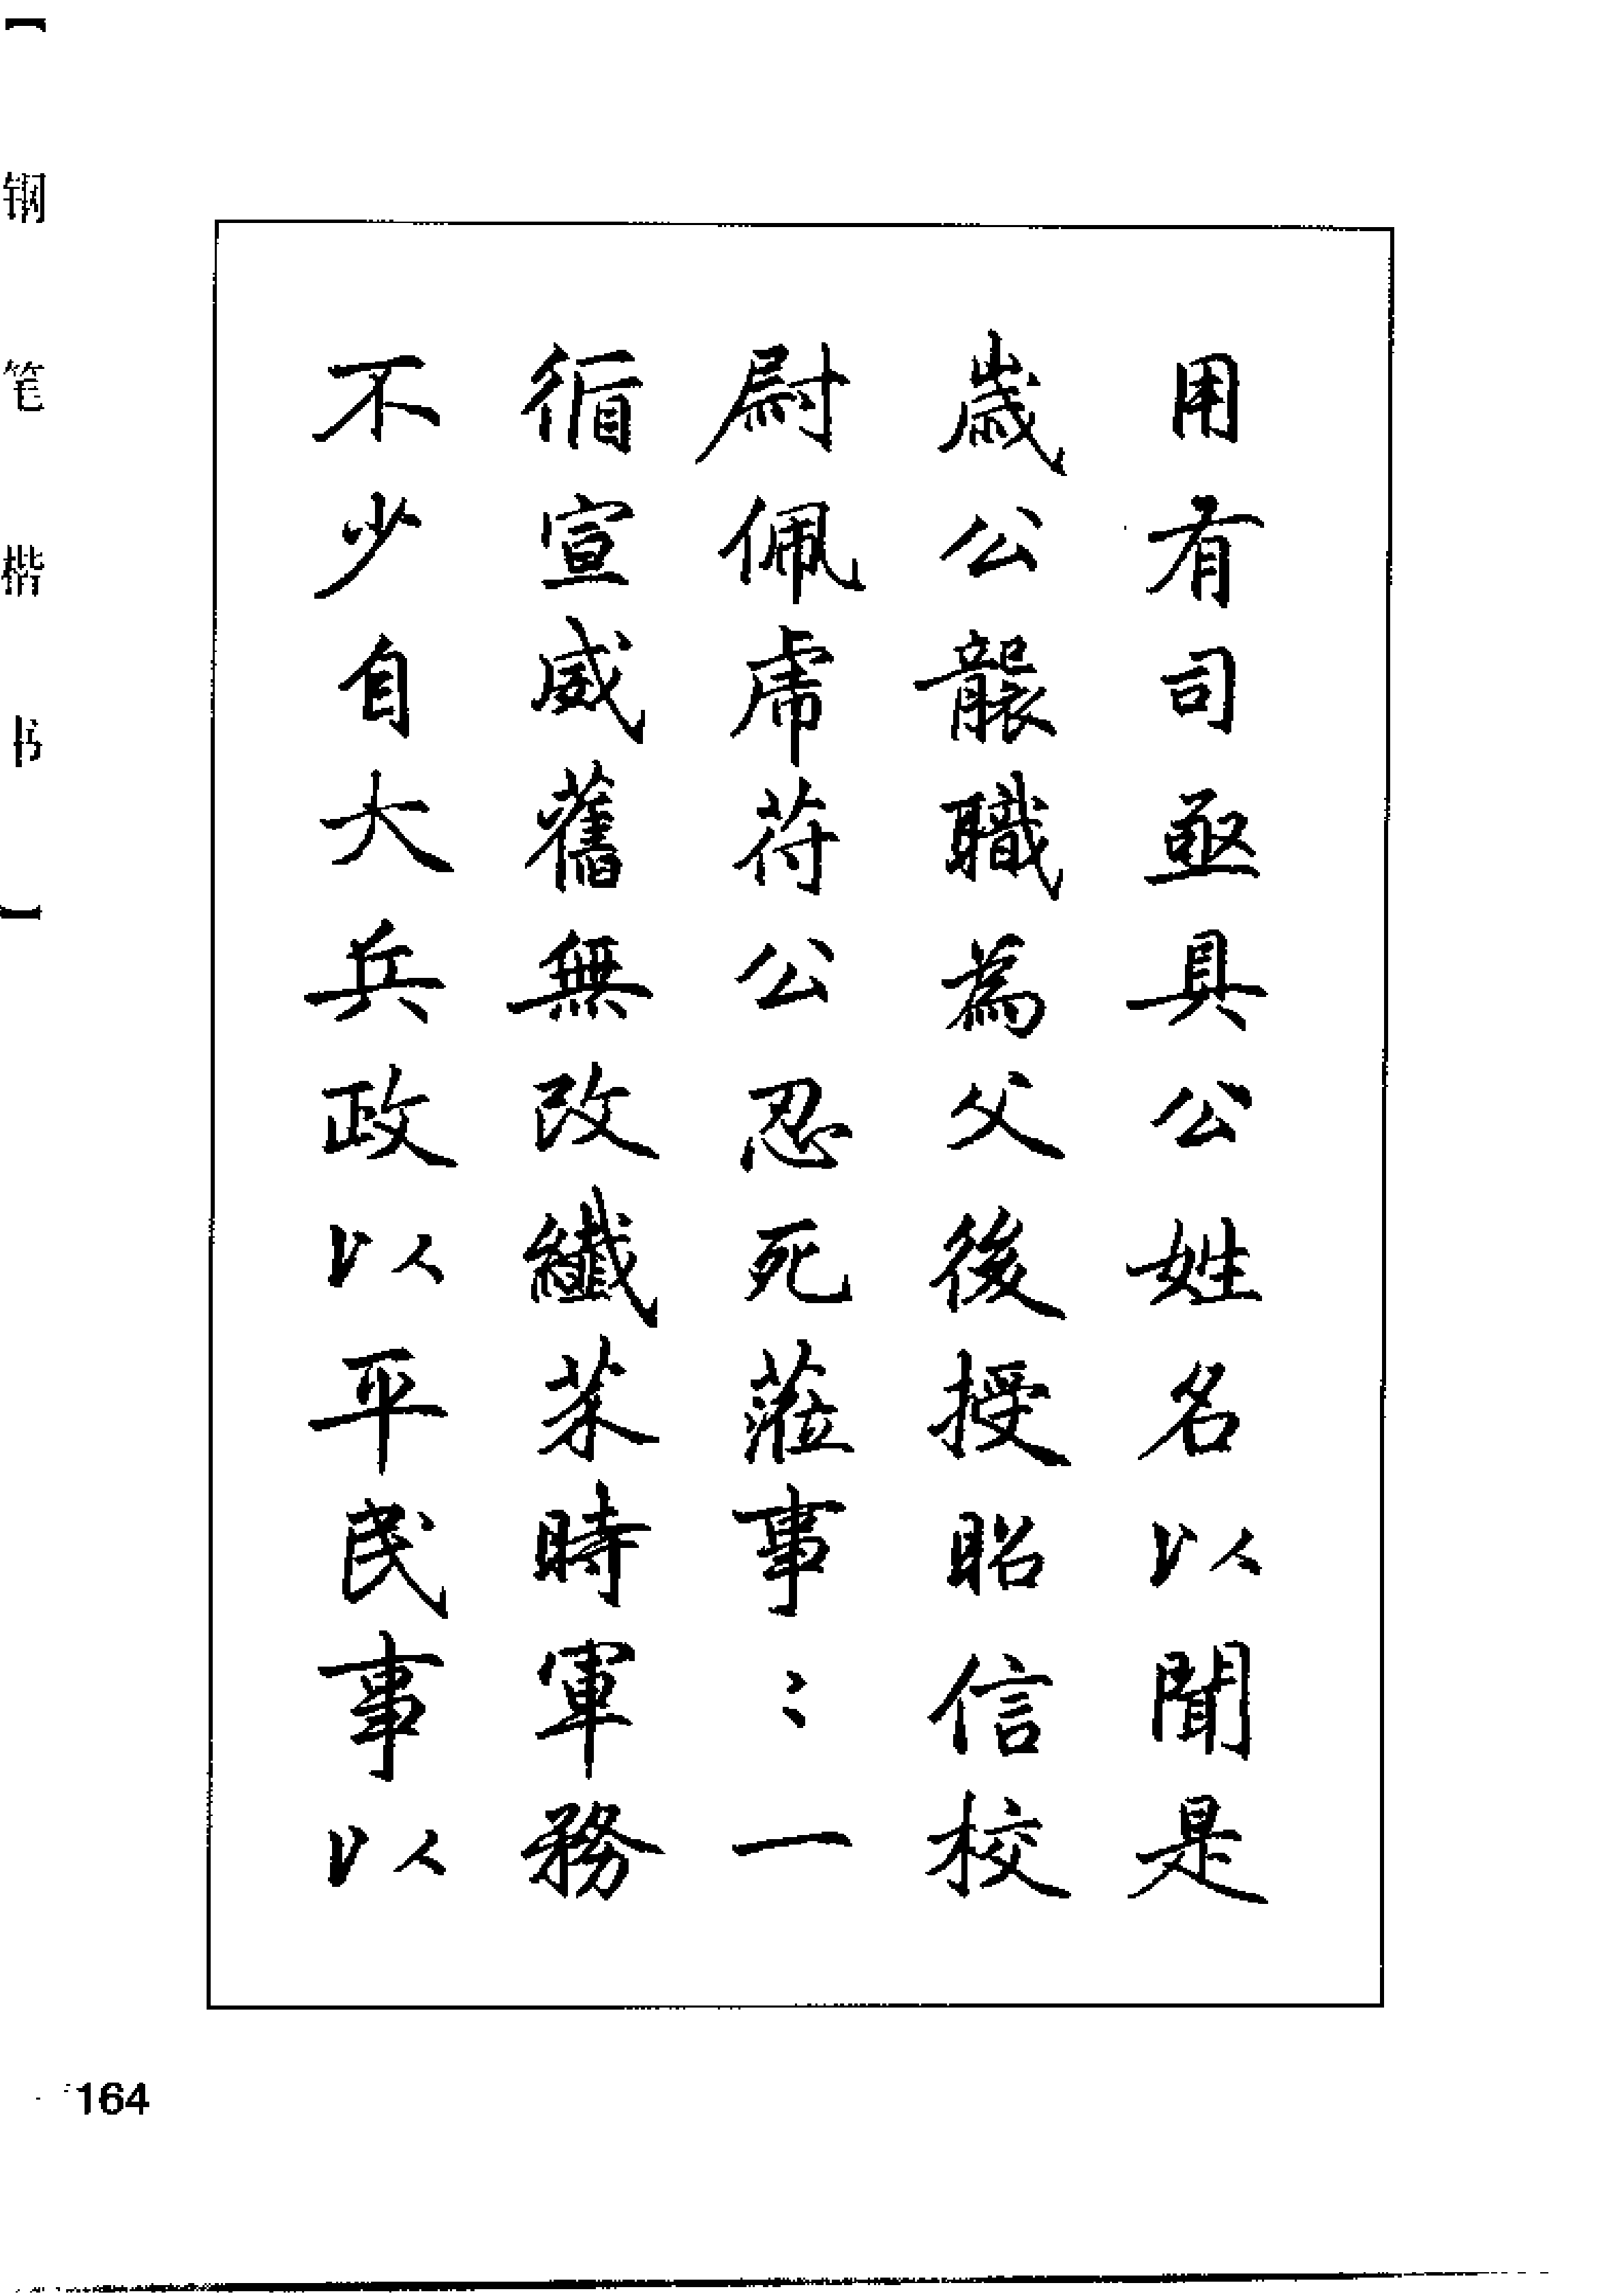 用有司亟具公姓名以聞是
歲公襲職為父後授昭信校
尉佩虎符公忍死蒞事〻一
循宣威舊無改纖芥時軍務
不少自大兵政以平民事以
【钢笔楷书】
164